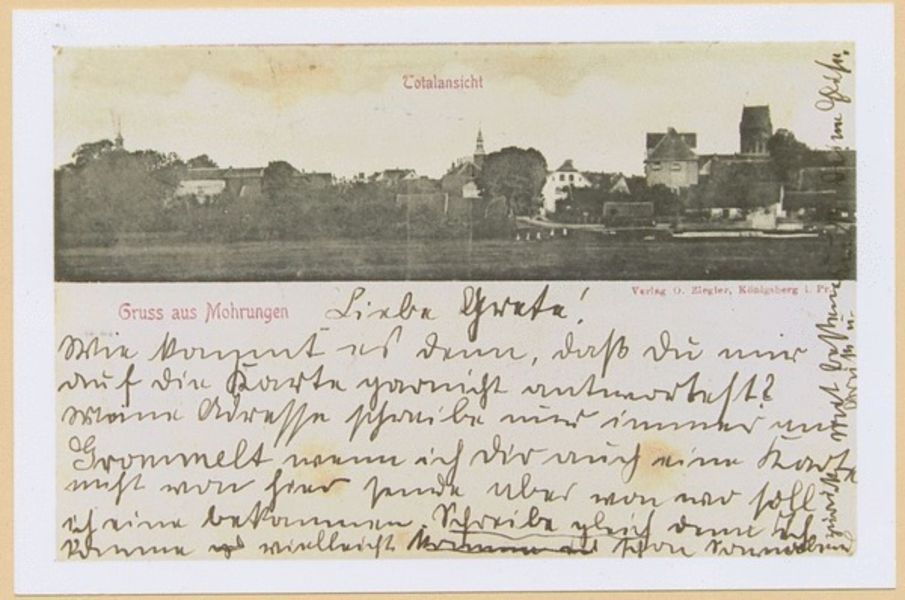 Totalansicht
Verlag O. Ziegler, Königsberg i. Pr.
Gruss aus Mohrungen
Liebe Grete!
Wie kommt es denn, daß du mir
auf die Karte garnicht antwortest?
Meine Adresse schreibe nur immer an
Grommelt wenn ich dir auch eine Karte
nicht von hier sende aber von wo soll
ich eine bekommen. Schreibe gleich denn ich
komme vielleicht schon Sonnabend
zurück. Mit besten